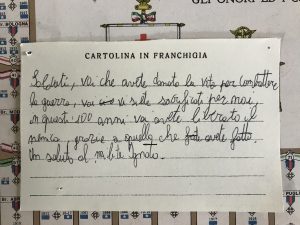 GLI ONORI ED I P
CARTOLINA IN FRANCHIGIA
Soldati, voi che avete donato la vita per combattere
la guerra, voi vi siete sacrificati per noi,
in questi 100 anni voi avete liberato il
nemico, grazie a quello che avete fatto.
Un saluto al milite Ignoto.